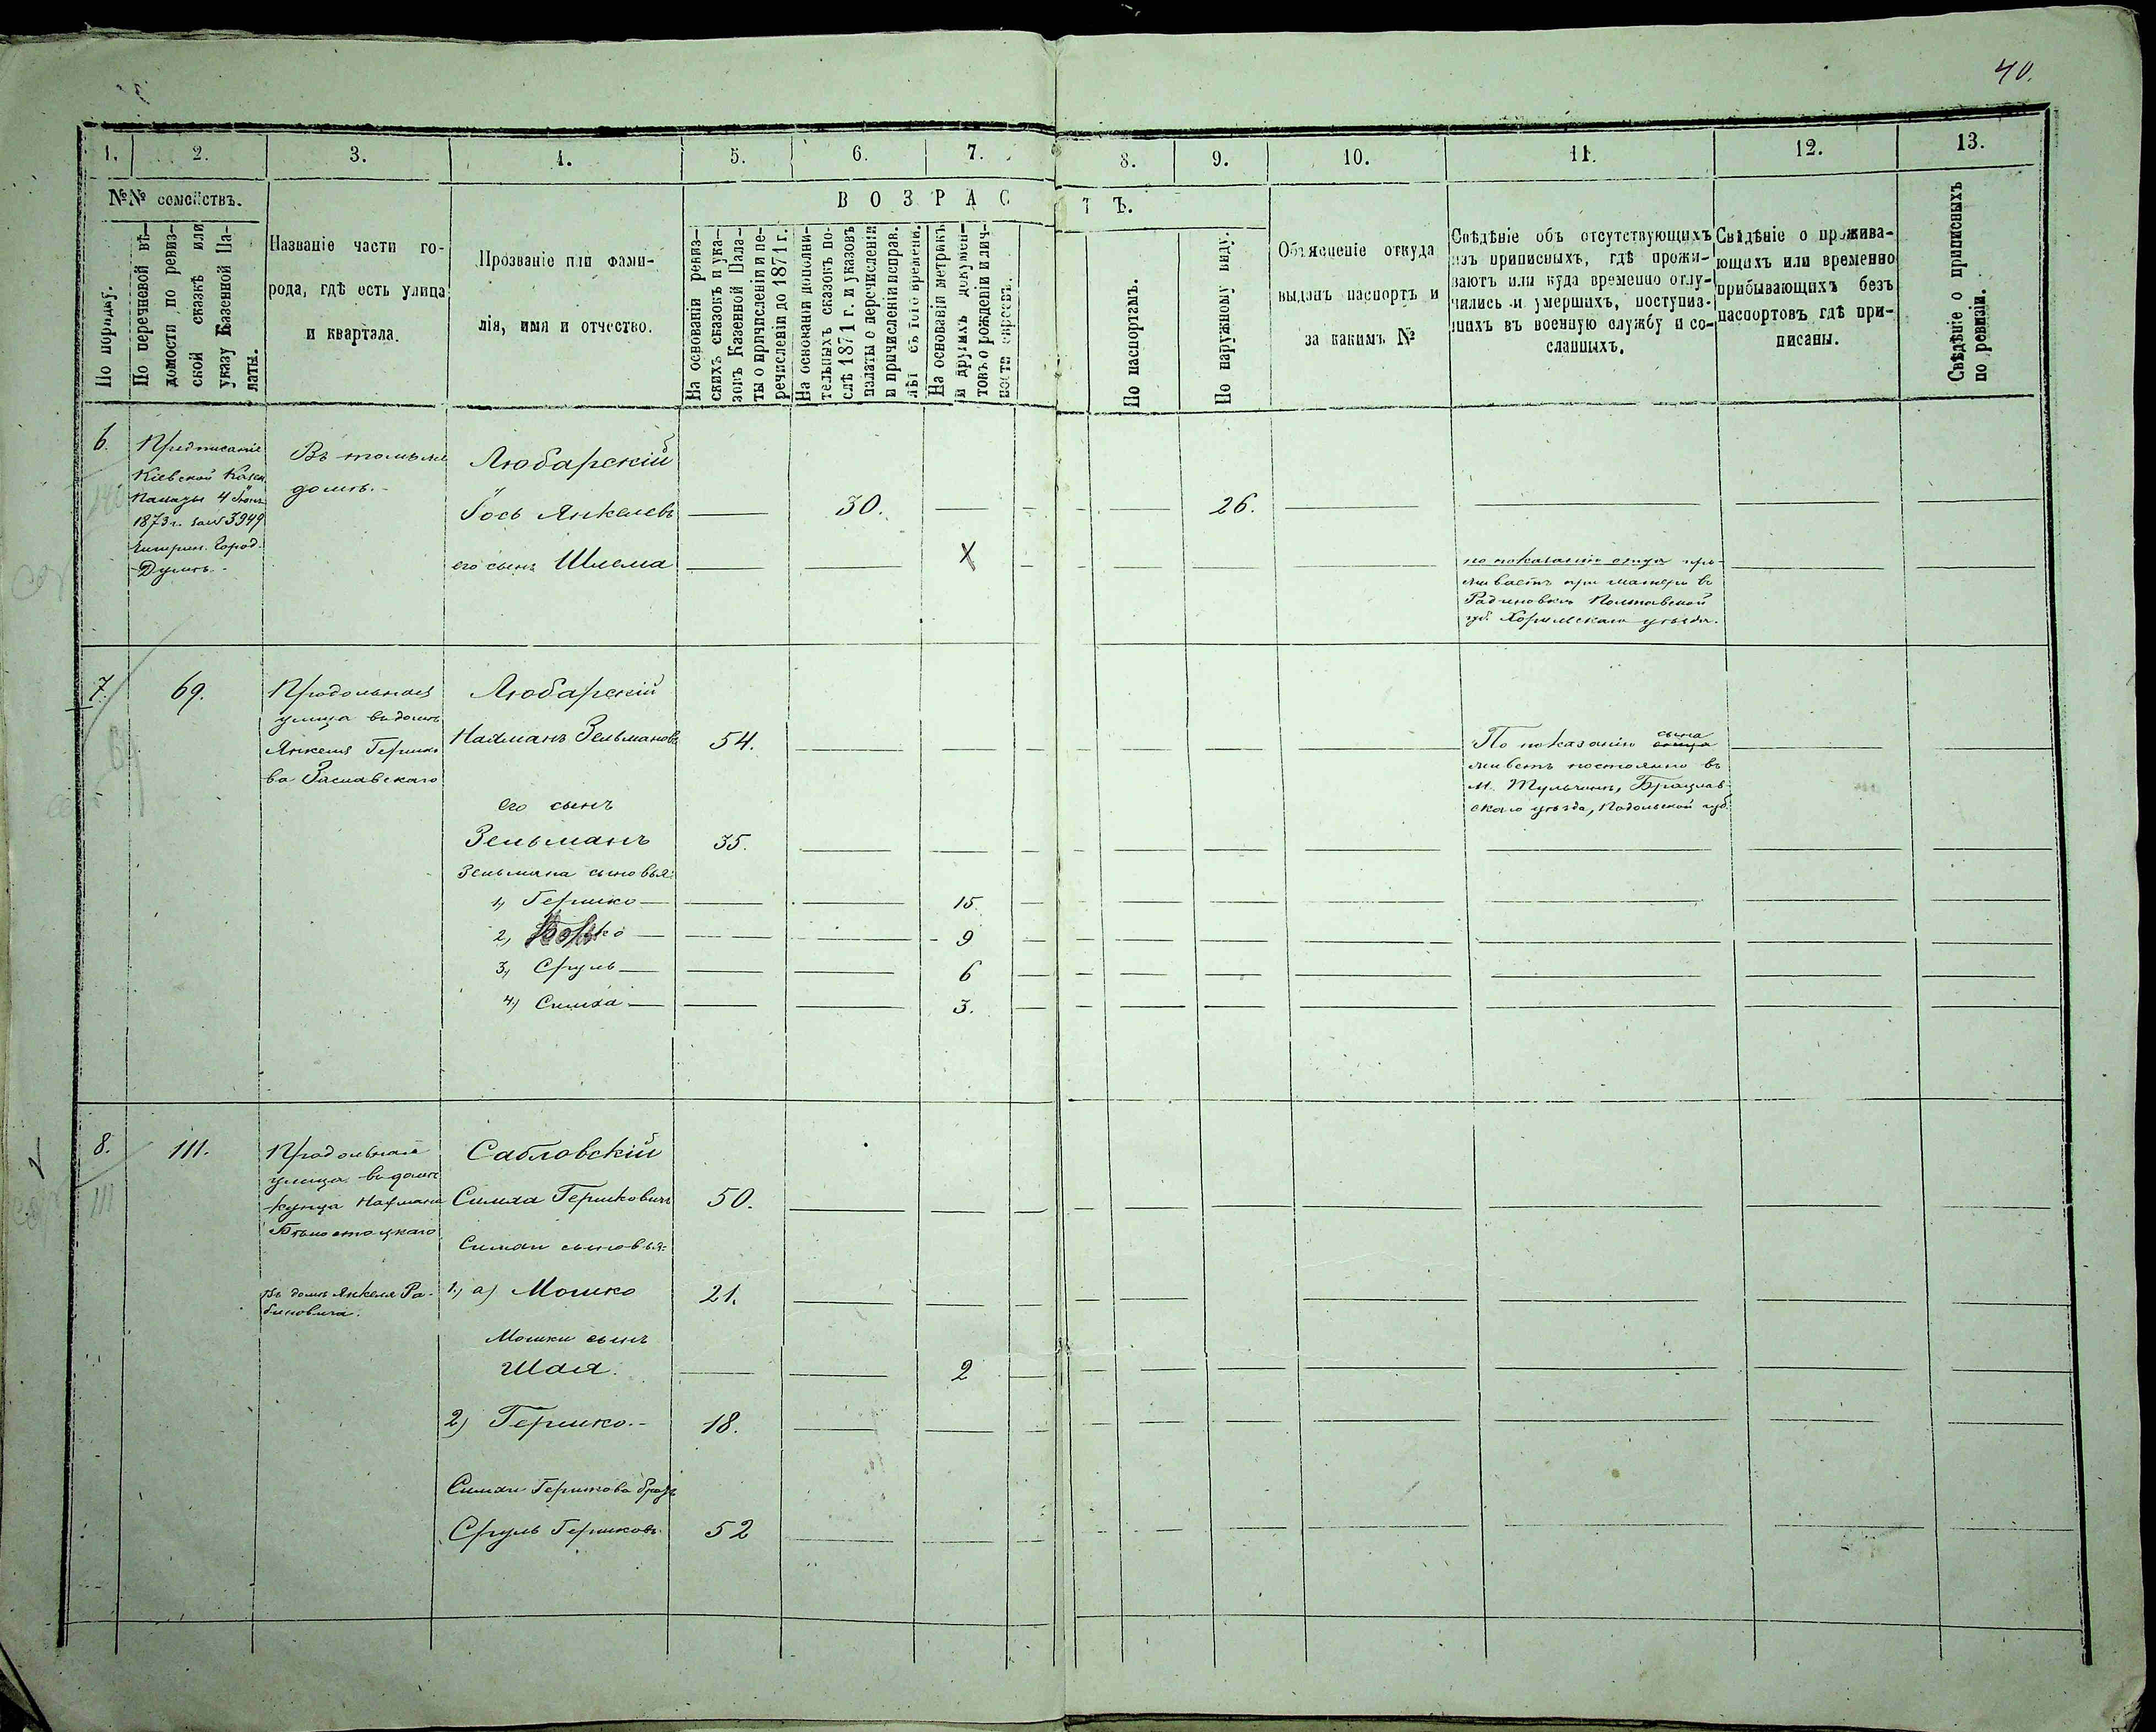 40.
1.
2.
3.
4.
5.
6.
7.
8.
9.
10.
11.
12.
13.
№№ семействъ.
По порядку.
По перечневой вѣ-
домости по ревиз-
ской сказкѣ или
указу Казенной Па-
латы.
Названіе части го-
рода, гдѣ есть улица
и квартала.
Прозваніе или фами-
лія, имя и отчество.
ВОЗРАСТЪ.
На основаніи ревиз-
скихъ сказокъ и ука-
зовъ Казенной Пала-
ты о причисленіи и пе-
речисленіи до 1871 г.
На основаніи дополни-
тельныхъ сказокъ по-
слѣ 1871 г. и указовъ
палаты о перечисленіи
и причисленіи исправ.
лѣт съ того времени.
На основаніи метрикъ
и другихъ докумен-
товъ о рожденіи и лич-
ности евреевъ.
По паспортамъ.
По наружному виду.
Объясненіе откуда
выданъ паспортъ и
за какимъ №
Свѣдѣніе объ отсутствующихъ
изъ приписныхъ, гдѣ прожи-
ваютъ или куда временно отлу-
чились и умершихъ, поступив-
шихъ въ военную службу и со-
сланныхъ.
Свѣдѣніе о прожива-
ющихъ или временно
прибывающихъ безъ
паспортовъ гдѣ при-
писаны.
Свѣдѣніе о приписныхъ
по ревизіи.
6.
Предписаніе
Кіевской Казен.
Палаты 4 Іюня
1873 г. за № 3949
Чигирин. Город.
Думѣ.
Въ томъ же
домѣ.
Любарскій
Іось Янкелевъ
30.
26.
его сынъ Шлема
X
по показанію отца про-
живаетъ при матери въ
Полтавской
губ. Хорольскаго уѣзда.
7.
69.
Продольная
улица въ домѣ
Янкеля Гершко
ва Заславскаго
Любарскій
Нахманъ Зельмановъ
54.
По показанію сына
живетъ постоянно въ
м. Тульчинѣ, Брацлав-
скаго уѣзда, Подольской губ.
его сынъ
Зельманъ
35.
Зельмана сыновья:
1, Гершко
15.
2, Борко
9
3, Сруль
6
4, Симха
3.
8.
111.
111
Продольная
улица въ домѣ
купца Нахмана
Бѣлостоцкаго
Сабловскій
Симха Гершковичъ
50.
Симхи сыновья:
Въ домѣ Янкеля Ра-
биновича.
1, а) Мошко
21.
Мошки сынъ
Шая.
2
2) Гершко.
18.
Симхи Гершкова братъ
Сруль Гершковъ.
52